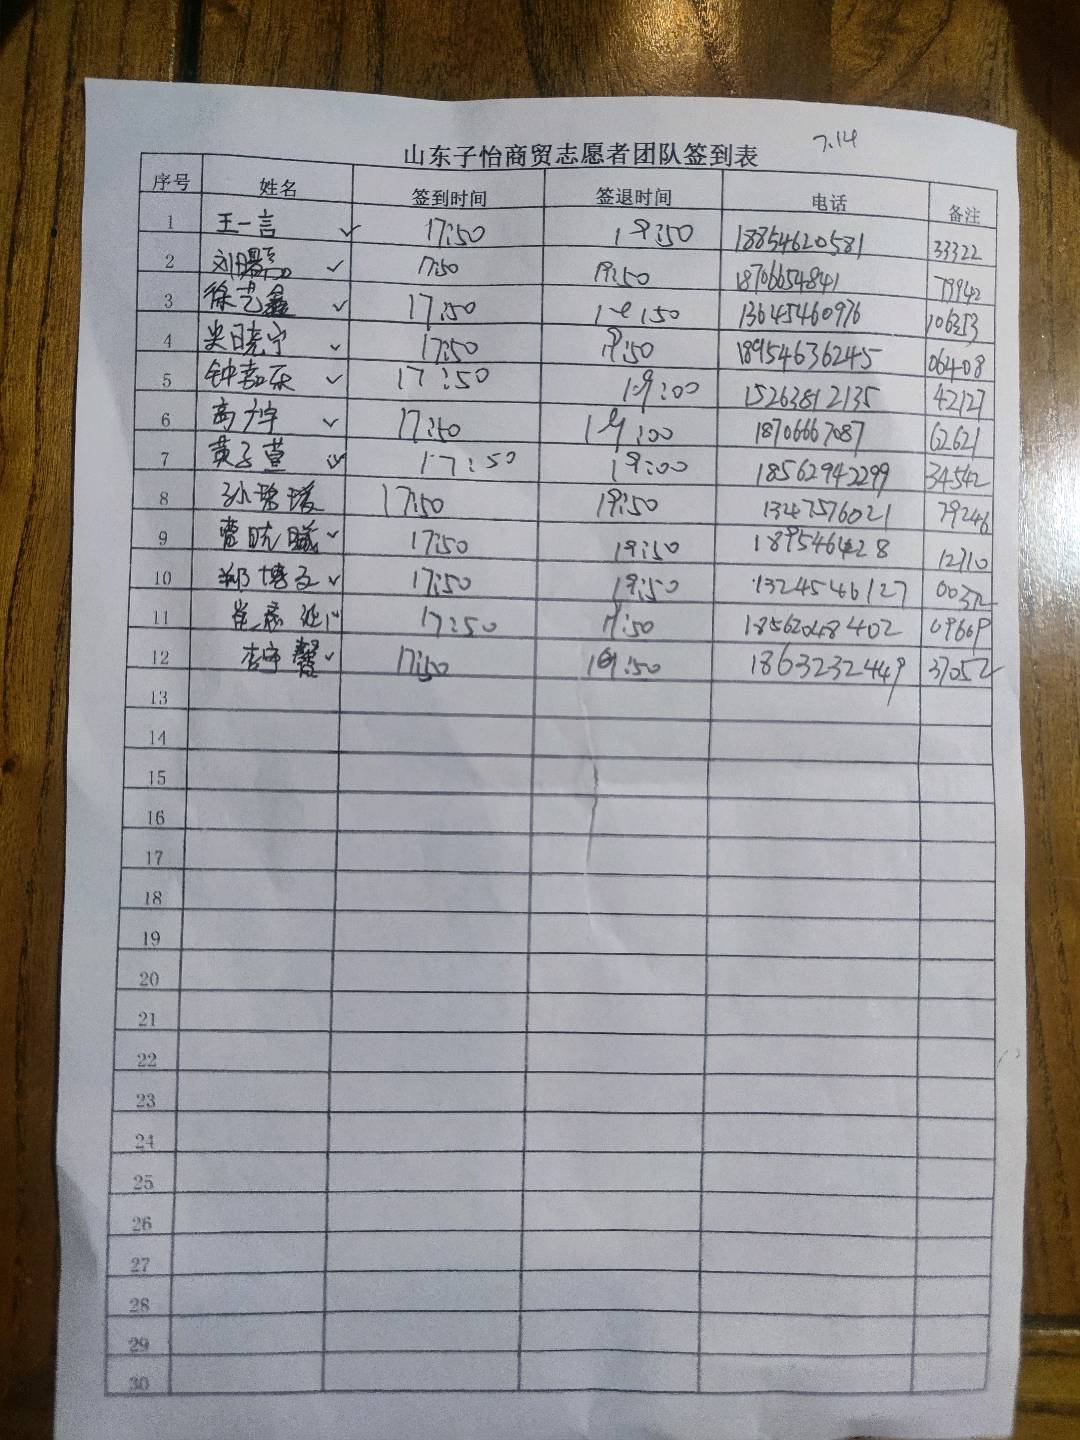 7.14
山东子怡商贸志愿者团队签到表
序号 姓名 签到时间 签退时间 电话 备注
1 王一言 ✓ 17:50 19:50 18854620581 33322
2 刘曙亮 ✓ 17:50 19:50 18706654841 79942
3 徐艺鑫 ✓ 17:50 19:50 13645460976 106353
4 吴晓宁 ✓ 17:50 19:50 18954636245 06408
5 钟嘉乐 ✓ 17:50 19:00 15263812135 42127
6 高宇 ✓ 17:50 19:00 18706667087 62621
7 黄子萱 ✓ 17:50 19:00 18562942299 34542
8 孙 17:50 19:50 1347576021 79246
9 曹晓曦 ✓ 17:50 19:50 12710
10 郑博文 ✓ 17:50 19:50 1324546127 00372
11 崔 ✓ 17:50 19:50 18562048402 09609
12 李宇馨 ✓ 17:50 19:50 1863232449 37052
13
14
15
16
17
18
19
20
21
22
23
24
25
26
27
28
29
30